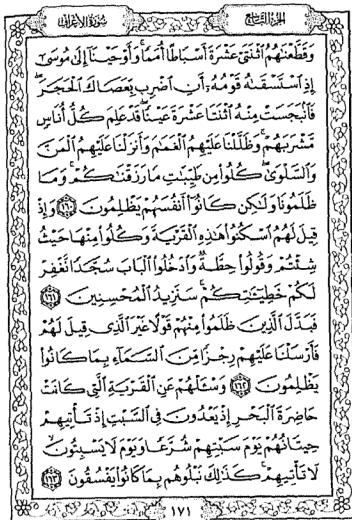 الجزء التاسع
سورة الأعراف
وَقَطَّعْنَٰهُمُ ٱثْنَتَىْ عَشْرَةَ أَسْبَاطًا أُمَمًا ۚ وَأَوْحَيْنَآ إِلَىٰ مُوسَىٰٓ
إِذِ ٱسْتَسْقَىٰهُ قَوْمُهُۥٓ أَنِ ٱضْرِب بِّعَصَاكَ ٱلْحَجَرَ ۖ
فَٱنۢبَجَسَتْ مِنْهُ ٱثْنَتَا عَشْرَةَ عَيْنًا ۖ قَدْ عَلِمَ كُلُّ أُنَاسٍ
مَّشْرَبَهُمْ ۚ وَظَلَّلْنَا عَلَيْهِمُ ٱلْغَمَٰمَ وَأَنزَلْنَا عَلَيْهِمُ ٱلْمَنَّ
وَٱلسَّلْوَىٰ ۖ كُلُوا۟ مِن طَيِّبَٰتِ مَا رَزَقْنَٰكُمْ ۚ وَمَا
ظَلَمُونَا وَلَٰكِن كَانُوٓا۟ أَنفُسَهُمْ يَظْلِمُونَ ١٦٠ وَإِذْ
قِيلَ لَهُمُ ٱسْكُنُوا۟ هَٰذِهِ ٱلْقَرْيَةَ وَكُلُوا۟ مِنْهَا حَيْثُ
شِئْتُمْ وَقُولُوا۟ حِطَّةٌ وَٱدْخُلُوا۟ ٱلْبَابَ سُجَّدًا نَّغْفِرْ
لَكُمْ خَطِيٓـَٰٔتِكُمْ ۚ سَنَزِيدُ ٱلْمُحْسِنِينَ ١٦١
فَبَدَّلَ ٱلَّذِينَ ظَلَمُوا۟ مِنْهُمْ قَوْلًا غَيْرَ ٱلَّذِى قِيلَ لَهُمْ
فَأَرْسَلْنَا عَلَيْهِمْ رِجْزًا مِّنَ ٱلسَّمَآءِ بِمَا كَانُوا۟
يَظْلِمُونَ ١٦٢ وَسْـَٔلْهُمْ عَنِ ٱلْقَرْيَةِ ٱلَّتِى كَانَتْ
حَاضِرَةَ ٱلْبَحْرِ إِذْ يَعْدُونَ فِى ٱلسَّبْتِ إِذْ تَأْتِيهِمْ
حِيتَانُهُمْ يَوْمَ سَبْتِهِمْ شُرَّعًا وَيَوْمَ لَا يَسْبِتُونَ ۙ
لَا تَأْتِيهِمْ ۚ كَذَٰلِكَ نَبْلُوهُم بِمَا كَانُوا۟ يَفْسُقُونَ ١٦٣
١٧١